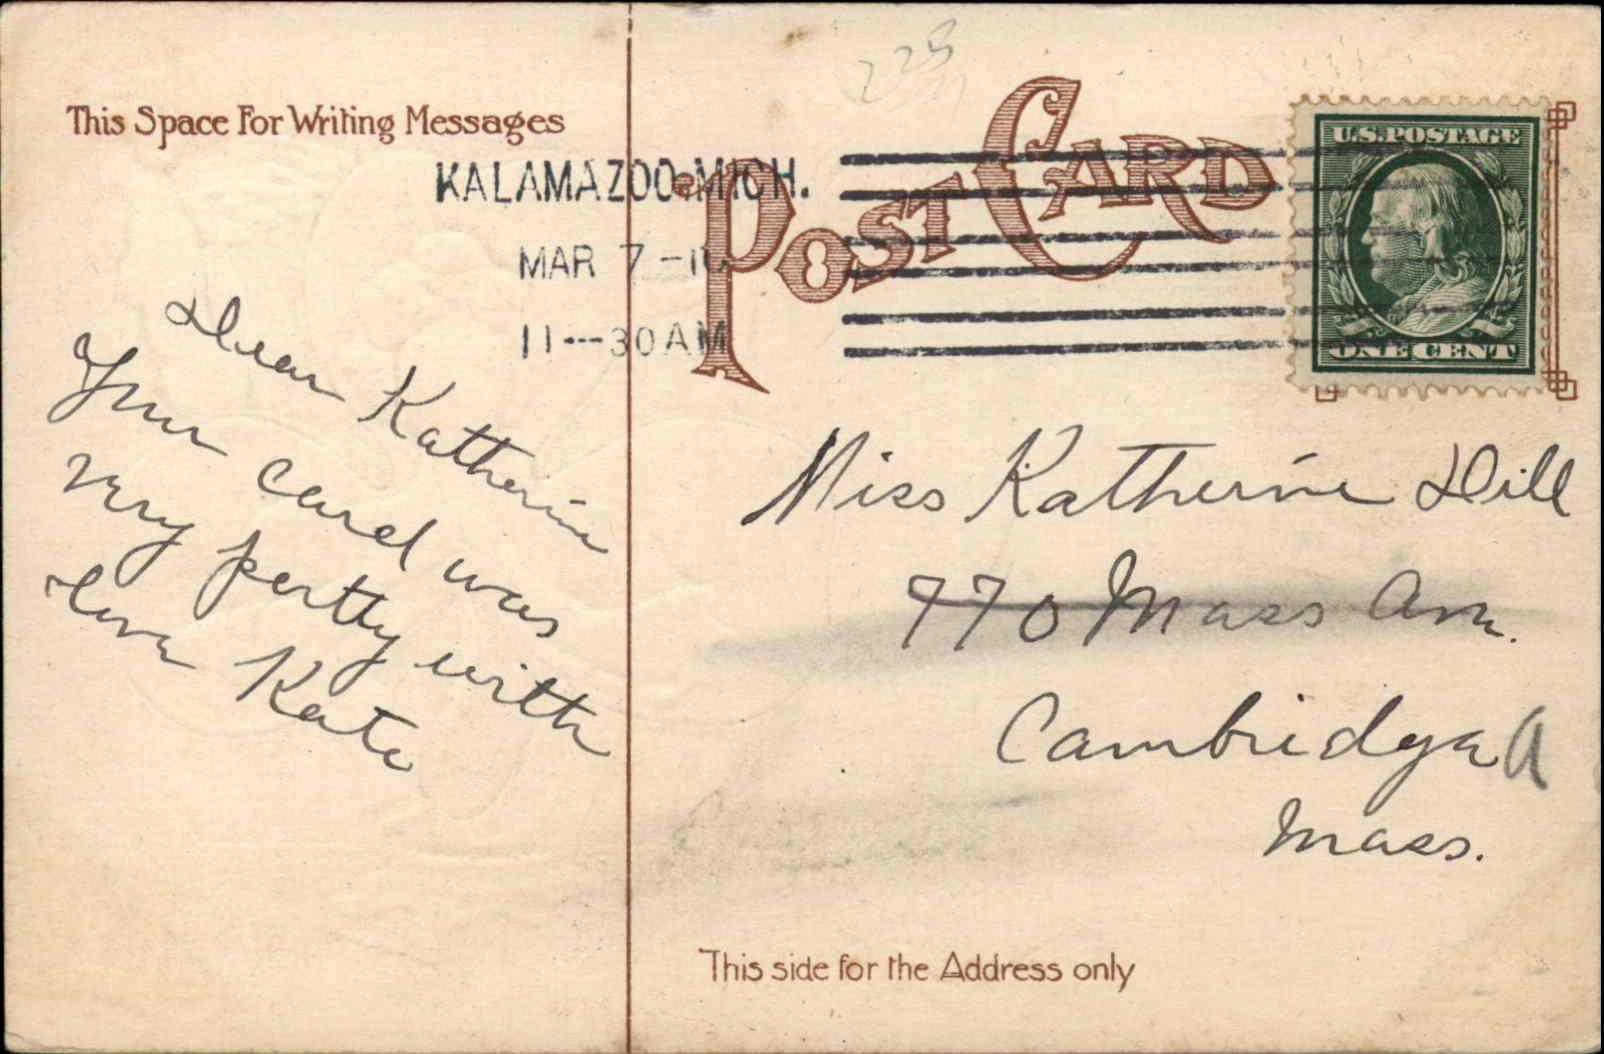 This Space For Writing Messages
KALAMAZOO, MICH.
MAR 7 -10
11---30 AM
POST CARD
U.S. POSTAGE
ONE CENT
Dear Katherine
Your card was
very pertty with
love Kate
Miss Katherine Dill
770 Mass Ave.
Cambridge
Mass.
This side for the Address only